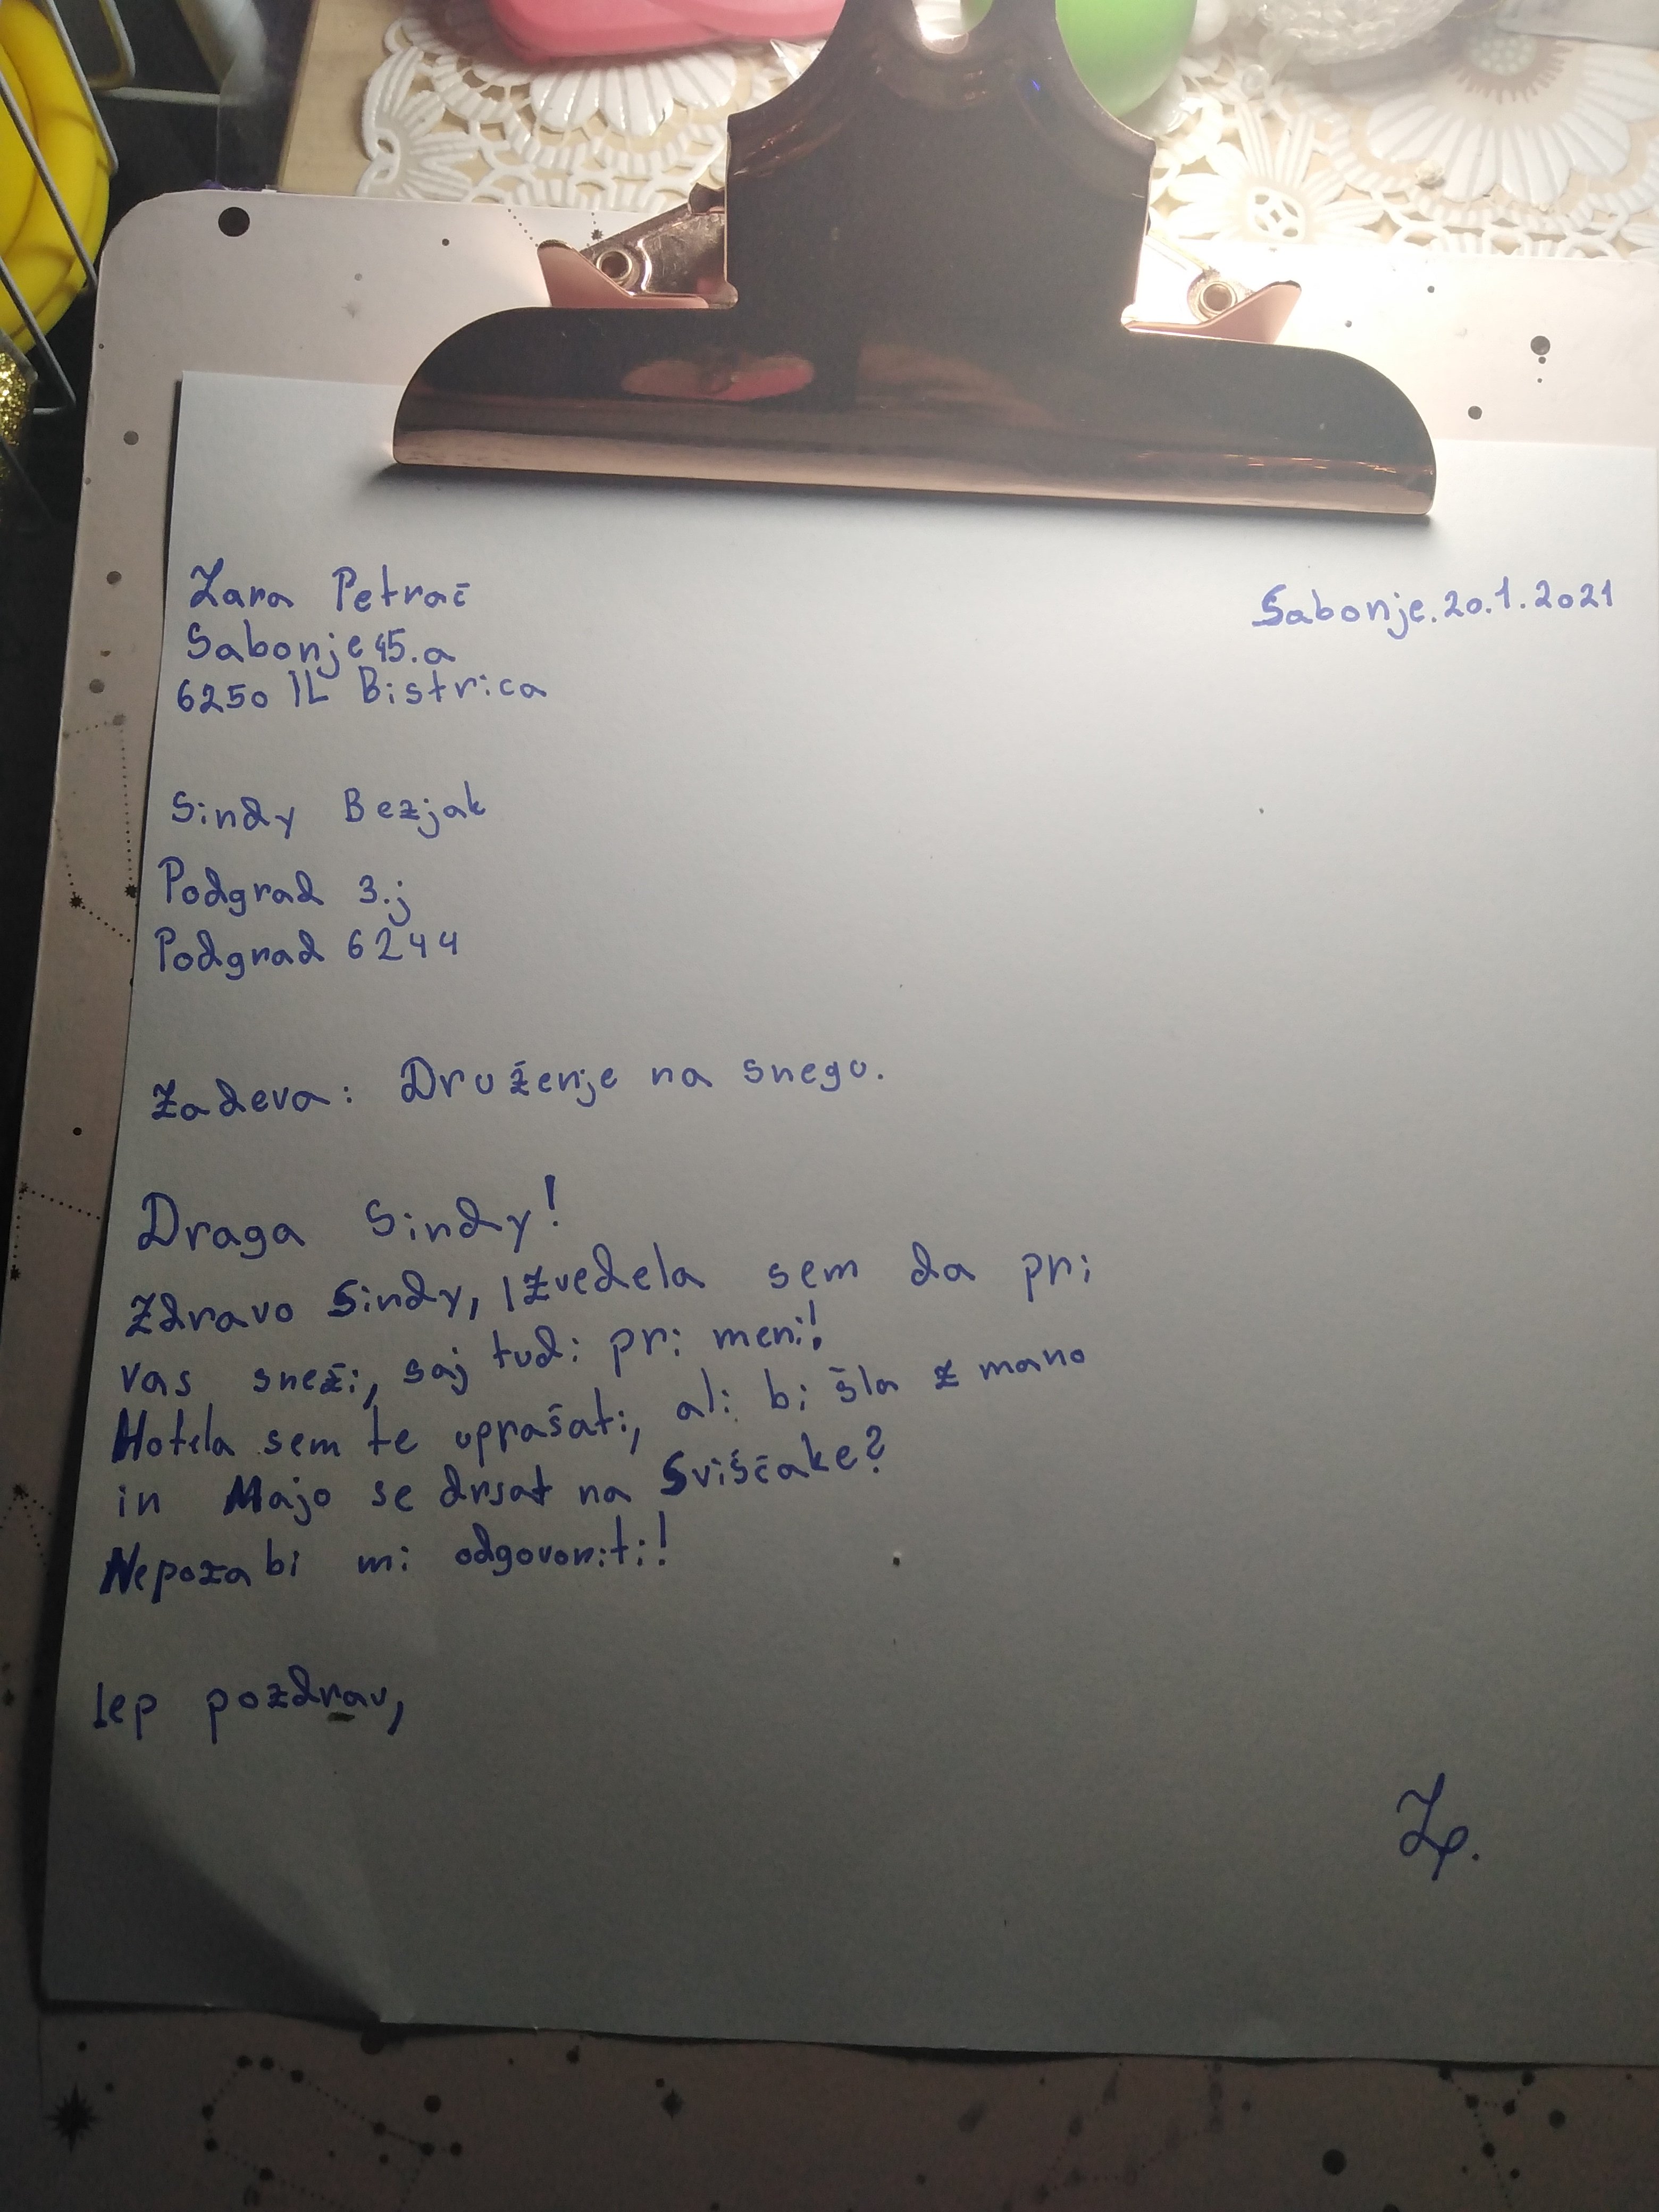 Zara Petrač
Sabonje.20.1.2021
Sabonje 45.a
6250 IL Bistrica
Sindy Bezjak
Podgrad 3.j
Podgrad 6244
Zadeva: Druženje na snegu.
Draga Sindy!
Zdravo Sindy, Izvedela sem da pri
vas sneži, saj tudi pri meni!
Hotela sem te uprašati, ali bi šla z mano
in Majo se drsat na Sviščake?
Nepozabi mi odgovoriti!
lep pozdrav,
Zp.